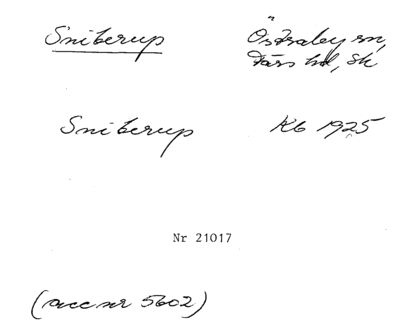 Sniberup Östraby sn,
Färs hd, Sk
Sniberup Kb 1925
Nr 21017
(acc nr 5602)